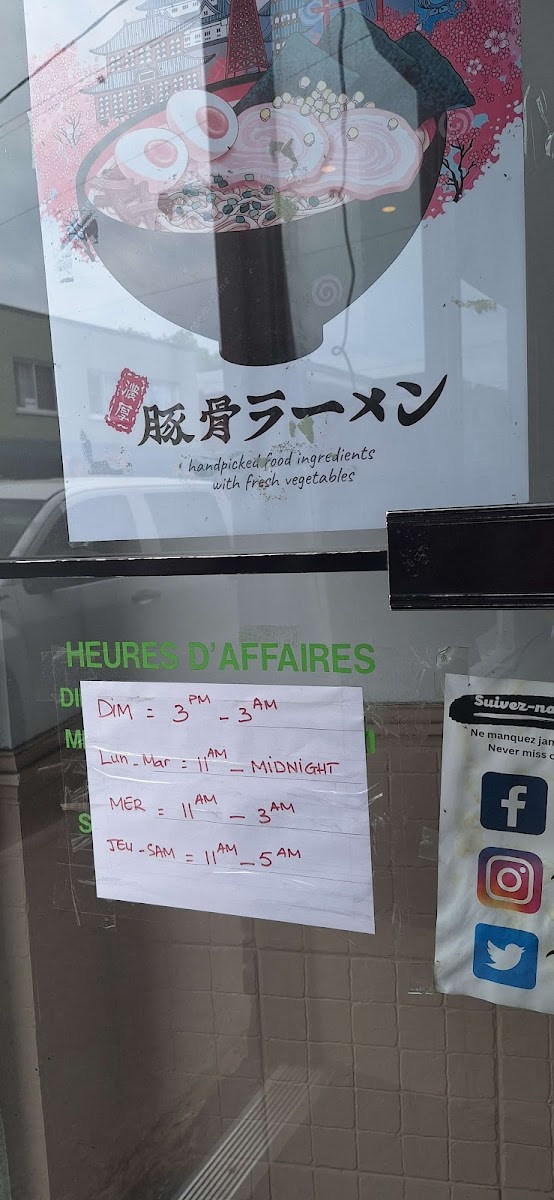 濃厚
豚骨ラーメン
handpicked food ingredients
with fresh vegetables
HEURES D'AFFAIRES
DIM = 3PM - 3AM
Lun - Mar = 11AM - MiDNiGHT
MER = 11AM - 3AM
JEU - SAM = 11AM - 5AM
Suivez-no
Ne manquez jam
Never miss